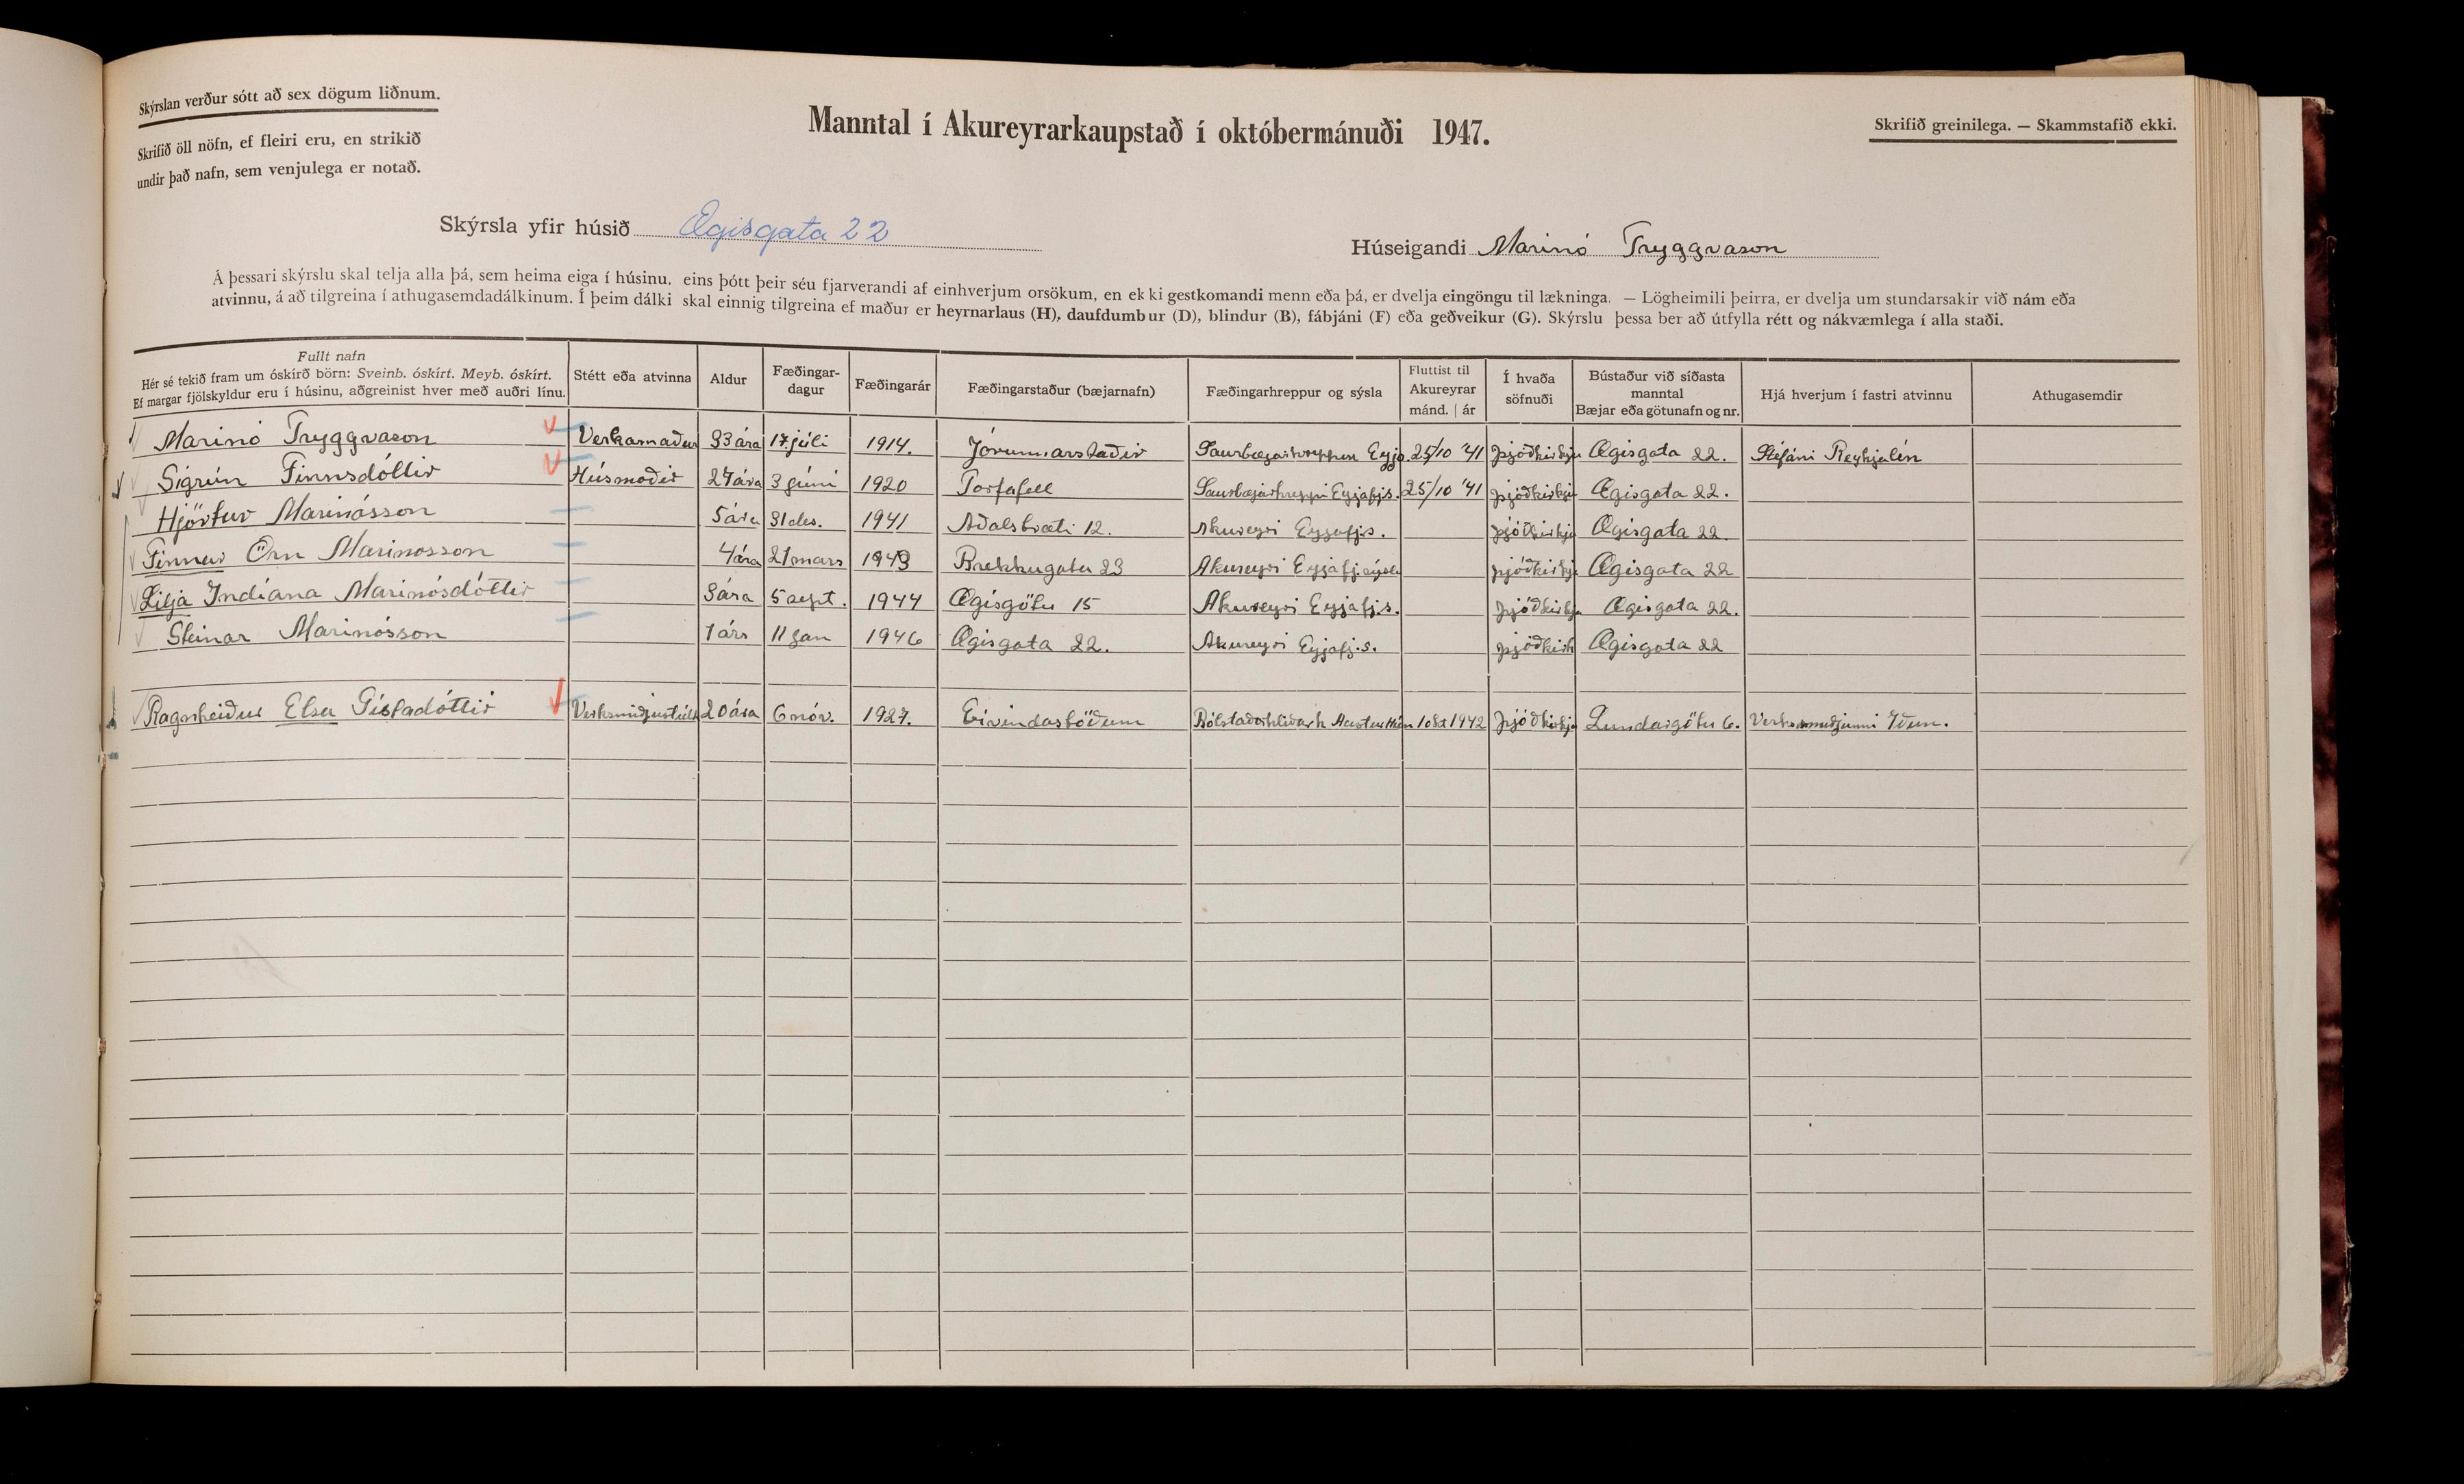 Skýrslan verður sótt að sex dögum liðnum.
Skrifið öll nöfn, ef fleiri eru, en strikið
undir það nafn, sem venjulega er notað.
Manntal í Akureyrarkaupstað í októbermánuði 1947.
Skrifið greinilega. — Skammstafið ekki.
Skýrsla yfir húsið Ægisgata 22
Húseigandi Marinó Tryggvason
Á þessari skýrslu skal telja alla þá, sem heima eiga í húsinu, eins þótt þeir séu fjarverandi af einhverjum orsökum, en ekki gestkomandi menn eða þá, er dvelja eingöngu til lækninga. — Lögheimili þeirra, er dvelja um stundarsakir við nám eða
atvinnu, á að tilgreina í athugasemdadálkinum. Í þeim dálki skal einnig tilgreina ef maður er heyrnarlaus (H), daufdumbur (D), blindur (B), fábjáni (F) eða geðveikur (G). Skýrslu þessa ber að útfylla rétt og nákvæmlega í alla staði.
Fullt nafn
Hér sé tekið fram um óskírð börn: Sveinb. óskírt. Meyb. óskírt.
Ef margar fjölskyldur eru í húsinu, aðgreinist hver með auðri línu.
Stétt eða atvinna
Aldur
Fæðingar-
dagur
Fæðingarár
Fæðingarstaður (bæjarnafn)
Fæðingarhreppur og sýsla
Fluttist til
Akureyrar
mánd. | ár
Í hvaða
söfnuði
Bústaður við síðasta
manntal
Bæjar eða götunafn og nr.
Hjá hverjum í fastri atvinnu
Athugasemdir
Marinó Tryggvason Verkamaður 33 ára 17. júlí 1914. Jórunnarstaðir Saurbæjarhreppur Eyjs. 25/10 '41 Þjóðkirkju Ægisgata 22. Stefáni Reykjalín
Sigrún Finnsdóttir Húsmóðir 27 ára 3 júní 1920 Torfufell Saurbæjarhreppi Eyjafj.s. 25/10 '41 Þjóðkirkju Ægisgata 22.
Hjörtur Marinósson 5 ára 31 des. 1941 Aðalstræti 12. Akureyri Eyjafj.s. Þjóðkirkju Ægisgata 22.
Finnur Örn Marinosson 4 ára 21 mars 1943 Brekkugata 23 Akureyri Eyjafj.sýsla Þjóðkirkju Ægisgata 22
Lilja Indíana Marinósdóttir 3 ára 5 sept. 1944 Ægisgötu 15 Akureyri Eyjafj.s. Þjóðkirkju Ægisgata 22.
Steinar Marinósson 1 árs 11 jan 1946 Ægisgata 22. Akureyri Eyjafj.s. Þjóðkirk Ægisgata 22
Ragnheiður Elsa Gísladóttir Verksmiðjustúlk 20 ára 6 nóv. 1927. Eivindastöðum Bólstaðarhlíðarh Austur Hún 1 okt 1942 Þjóðkirkju Lundargötu 6. Verksmiðjunni Iðun.